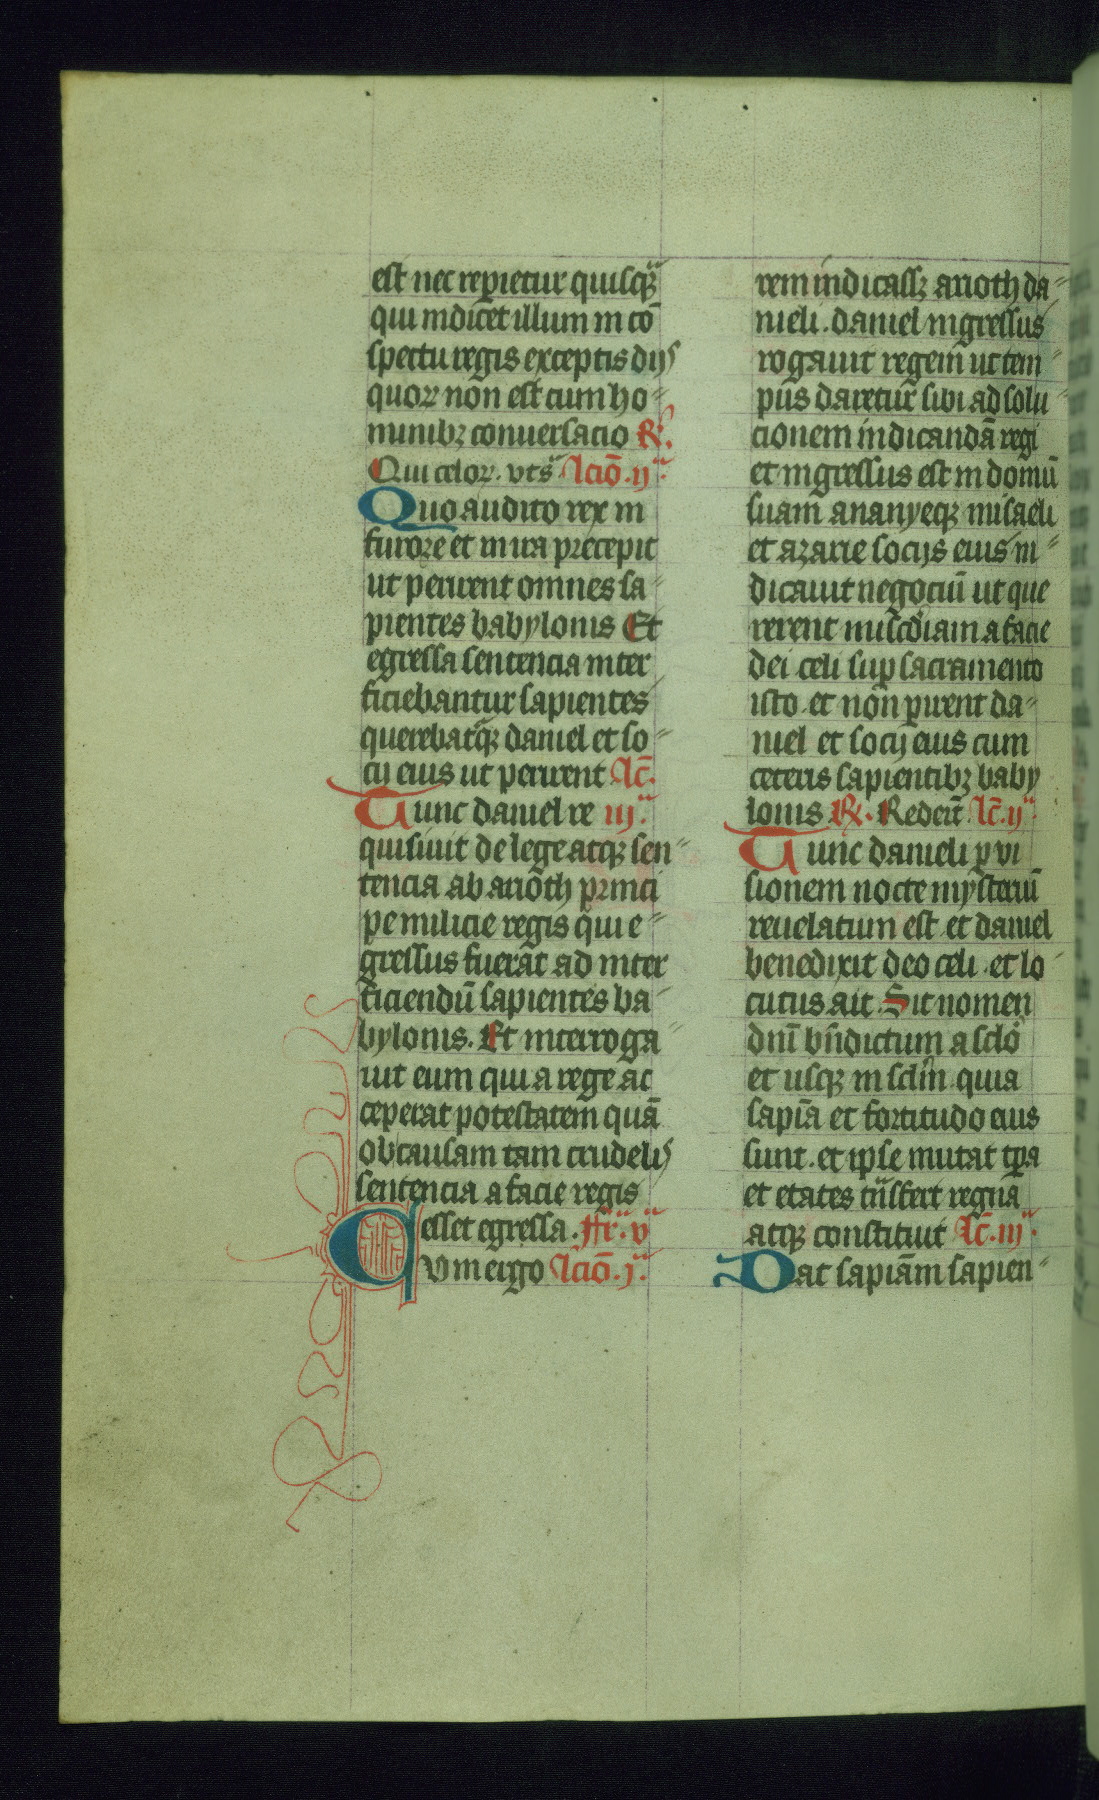 est nec reperietur quisq̄ᷓ
qui indicet illum in cō
spectu regis exceptis dijs
quorꝝ non est cum ho-
minibꝫ conuersacio ℟.
Qui celorꝝ. vt sᷓ. Lcīo. ijᷓ.
Quo audito rex in
furore et in ira precepit
ut perirent omnes sa-
pientes babylonis Et
egressa sentencia inter
ficiebantur sapientes
querebatqꝫ daniel et so-
cij eius ut perirent Lc̄.
Tunc daniel re iijᷓ.
quisiuit de lege atqꝫ sen-
tencia ab arioth princi
pe milicie regis qui e-
gressus fuerat ad inter
ficiendū sapientes ba-
bylonis. Et interroga
uit eum qui a rege ac
ceperat potestatem quā
ob causam tam crudelis
sentencia a facie regis
esset egressa. Fr̄. vᷓ
Cvm ergo Lcīo. jᷓ.
rem indicassꝫ arioth da-
nieli. daniel ingressus
rogauit regem ut tem-
pus daretur sibi ad solu-
cionem indicandā regi
et ingressus est in domū
suam ananyeqꝫ misaeli
et azarie socijs eius in-
dicauit negociū ut que
rerent mīscd̄iam a facie
dei celi suꝑ sacramento
isto. et non ꝑirent da-
niel et socij eius cum
ceteris sapientibꝫ baby
lonis ℟. Redeīt. Lc̄. ijᷓ.
Tunc danieli ꝑ vi
sionem nocte mysteriū
reuelatum est. et daniel
benedixit deo celi. et lo-
cutus ait. Sit nomen
dnī bn̄dictum a sclo
et usqꝫ in sclm̄. quia
sapiā et fortitudo eius
sunt. et ipse mutat tꝑa
et etates tn̄sfert regna
atqꝫ constituit Lc̄. iijᷓ.
Dat sapiām sapien-